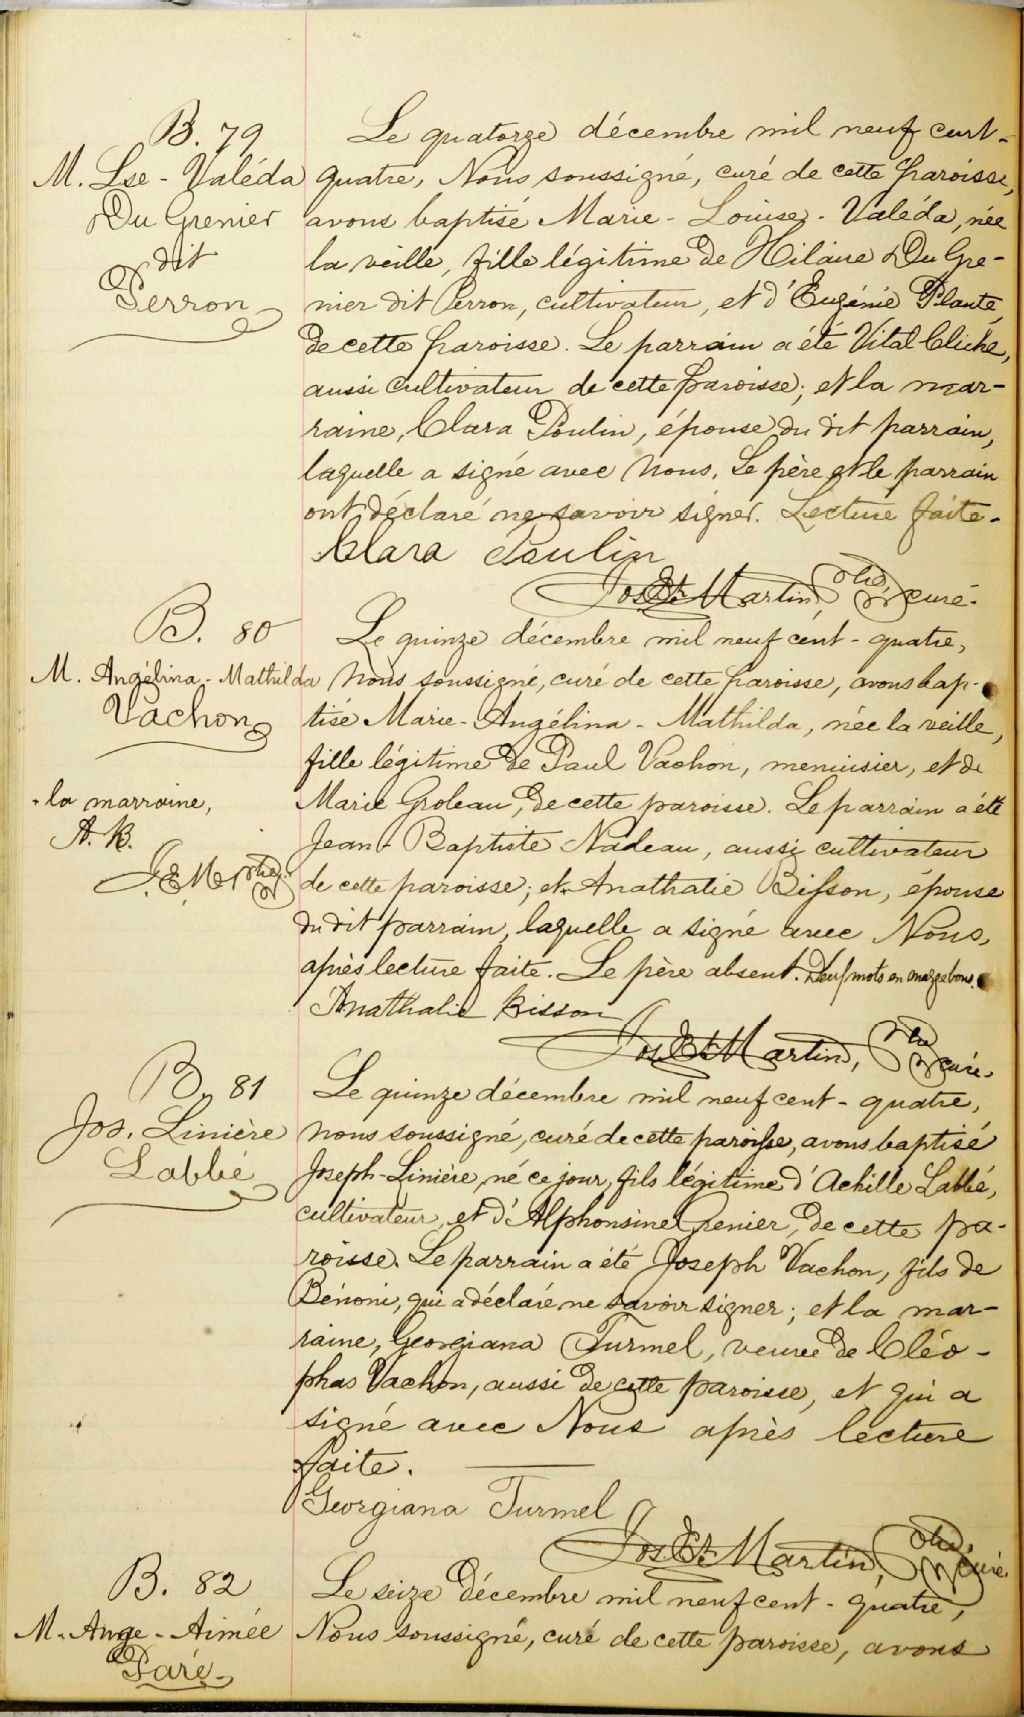 B. 79
M. Lse - Valéda
Du Grenier
dit
Perron
Le quatorze décembre mil neuf cent-
quatre, Nous soussigné, curé de cette paroisse,
avons baptisé Marie - Louise - Valéda, née
la veille, fille légitime de Hilaire Du Gre-
nier dit Perron, cultivateur, et d'Eugénie Plante,
de cette paroisse. Le parrain a été Vital Cliche,
aussi cultivateur de cette paroisse; et la mar-
raine, Clara Poulin, épouse du dit parrain,
laquelle a signé avec Nous. Le père et le parrain
ont déclaré ne savoir signer. Lecture faite.
Clara Poulin
Jos Et. Martin, Ptre, curé.
B. 80
M. Angélina - Mathilda
Vachon
Le quinze décembre mil neuf cent - quatre,
Nous soussigné, curé de cette paroisse, avons bap-
tisé Marie - Angélina - Mathilda, née la veille,
fille légitime de Paul Vachon, menuisier, et de
Marie Groleau, de cette paroisse. Le parrain a été
Jean - Baptiste Nadeau, aussi cultivateur
de cette paroisse; et Anathalie Bisson, épouse
du dit parrain, laquelle a signé avec Nous,
après lecture faite. Le père absent. Deux mots en marge bons.
+ la marraine,
A. B.
J. E. M. Ptre
Anathalie Bisson
Jos. Et. Martin, Ptre curé.
B. 81
Jos. Linière
Labbé
Le quinze décembre mil neuf cent - quatre,
Nous soussigné, curé de cette paroisse, avons baptisé
Joseph - Linière, né ce jour, fils légitime d'Achille Labbé,
cultivateur, et d'Alphonsine Grenier, de cette pa-
roisse. Le parrain a été Joseph Vachon, fils de
Bénoni, qui a déclaré ne savoir signer; et la mar-
raine, Georgiana Turmel, veuve de Cléo-
phas Vachon, aussi de cette paroisse, et qui a
signé avec Nous après lecture
faite.
Georgiana Turmel
Jos Et. Martin, Ptre, curé.
B. 82
M. Ange - Aimée
Paré
Le seize décembre mil neuf cent - quatre,
Nous soussigné, curé de cette paroisse, avons